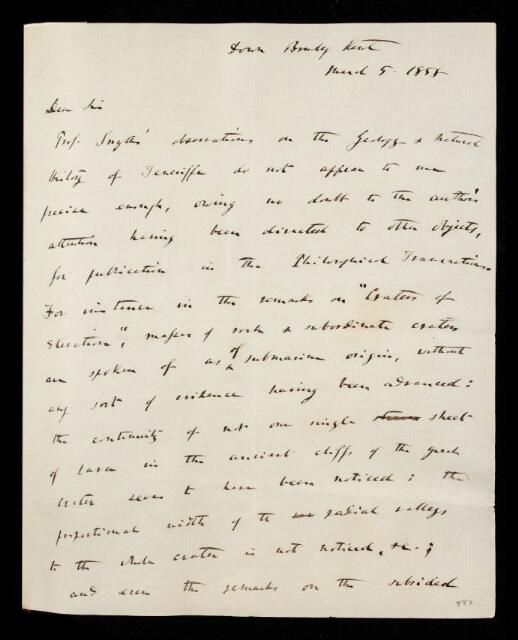 Down Bromley Kent
March 5. 1858
Dear Sir
Prof. Smyth's observations on the Geology & Natural
History of Teneriffe do not appear to me
precise enough, owing no doubt to the author's
attention having been directed to other objects,
for publication in the Philosophical Transactions.
For instance in the remarks on "Craters of
Elevation", masses of rock & subordinate craters
are spoken of as of submarine origin, without
any sort of evidence having been advanced:
the continuity of not one single sheet
of lava in the ancient cliffs of the great
crater seems to have been noticed: the
proportional width of the radial valleys
to the whole crater is not noticed, &c.;
and even the remarks on the subsided